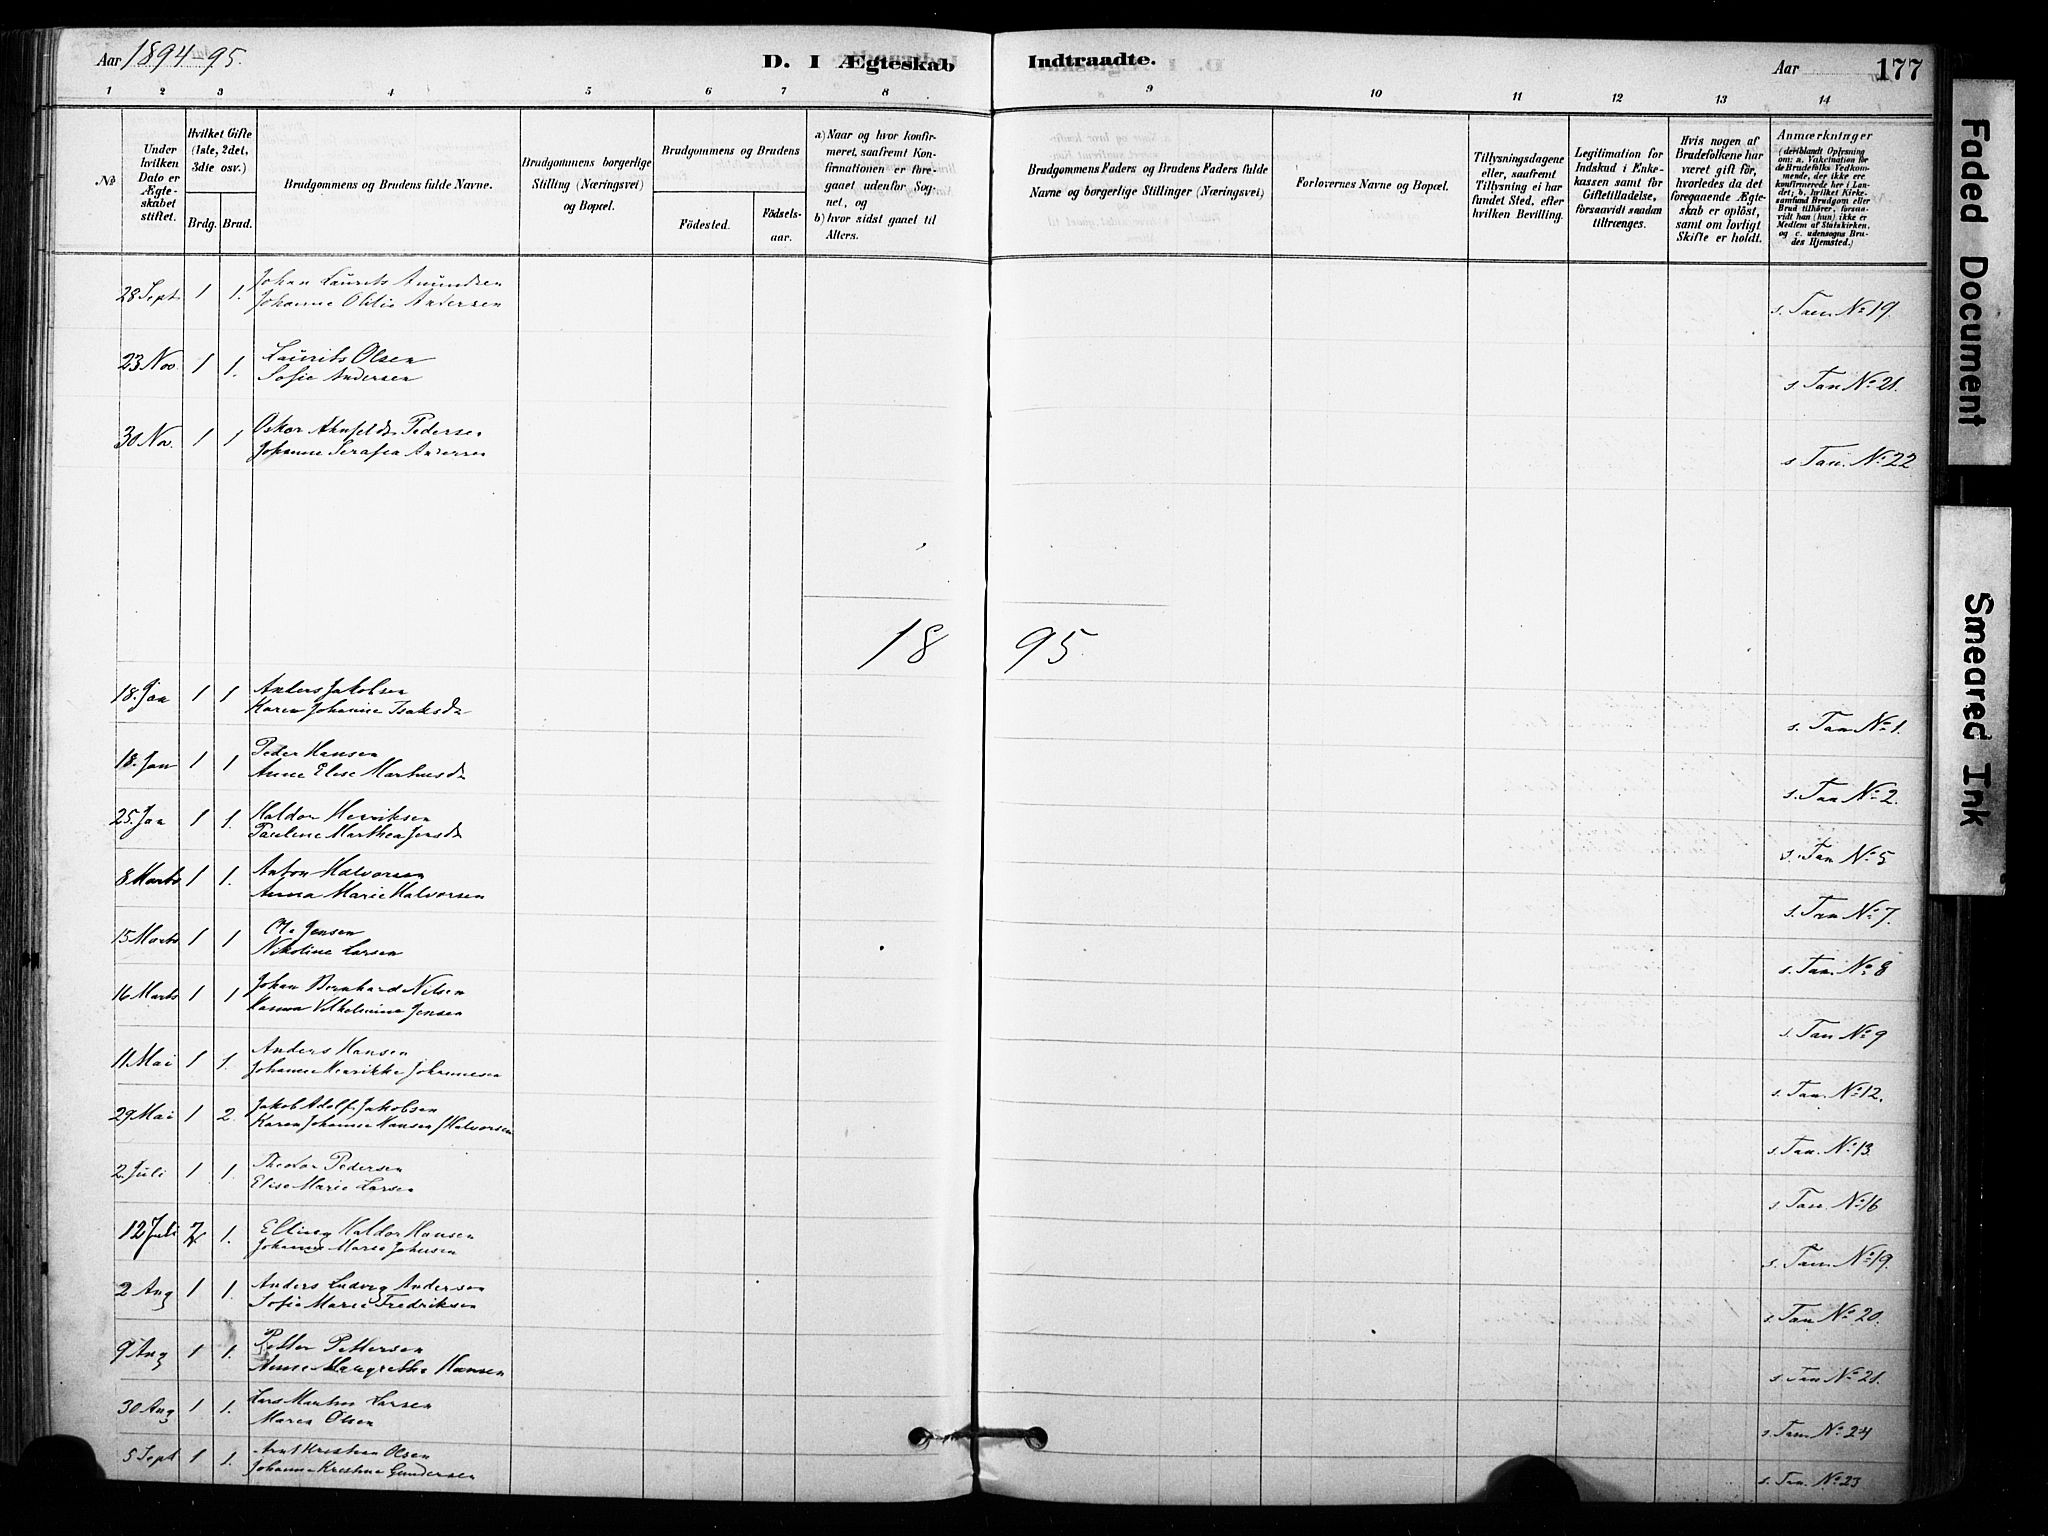 Aar 1894-95.
D. I Ægteskab Indtraadte.
Aar 177
1 2 3 4 5 6 7 8 9 10 11 12 13 14
№
Under hvilken Dato er Ægteskabet stiftet.
Hvilket Gifte (1ste, 2det, 3die osv.)
Brdg. Brud.
Brudgommens og Brudens fulde Navne.
Brudgommens borgerlige Stilling (Næringsvei) og Bopæl.
Brudgommens og Brudens
Födested.
Födselsaar.
a) Naar og hvor konfirmeret, saafremt Konfirmationen er foregaaet udenfor Sognet, og
b) hvor sidst gaaet til Alters.
Brudgommens Faders og Brudens Faders fulde Navne og borgerlige Stillinger (Næringsvei)
Forlovernes Navne og Bopæl.
Tillysningsdagene eller, saafremt Tillysning ei har fundet Sted, efter hvilken Bevilling.
Legitimation for Indskud i Enkekassen samt for Giftetilladelse, forsaavidt saadan tiltrænges.
Hvis nogen af Brudefolkene har været gift för, hvorledes da det foregaaende Ægteskab er oplöst, samt om lovligt Skifte er holdt.
Anmærkninger
(deriblandt Oplysning om: a. Vakcination for de Brudefolks Vedkommende, der ikke ere konfirmerede her i Landet; b. hvilket Kirkesamfund Brudgom eller Brud tilhører, forsaavidt han (hun) ikke er Medlem af Statskirken, og c. udensogns Brudes Hjemsted.)
28 Sept. 1 1. Johan Laurits Amundsen
Johanne Otilie Andersen s. Tan. No 19.
23 Nov. 1 1. Laurits Olsen
Sofie Andersen s. Tan No 21.
30 Nov. 1 1 Oskar Ahnfeldt Pedersen
Johanne Serafia Andersen s. Tan. No 22
1895.
18. Jan 1 1 Anders Jakobsen
Karen Johanne Isaksdr s. Tan No 1.
18. Jan 1 1 Peder Hansen
Anne Elise Marhusdr s. Tan No 2.
25. Jan 1 1. Haldor Henriksen
Pauline Marthea Jensdr s. Tan No 5
8 Marts 1 1. Anton Halvorsen
Anna Marie Halvorsen s. Tan No 7.
15 Marts 1 1 Ole Jensen
Nikoline Larsen s. Tan. No 8
16 Marts 1 1 Johan Bernhard Nilsen
Hanna Vilhelmine Jensen s. Tan No 9
11 Mai 1 1. Anders Hansen
Johanne Henrikke Johannesen s. Tan. No 12.
29 Mai 1 2. Jakob Adolf Jakobsen
Karen Johanne Hansen f Halvorsen s. Tan. No 13.
2. Juli 1 1. Theodor Pedersen
Elise Marie Larsen s. Tan No 16
12 Juli 1. Elling Haldor Hansen
Johanne Marie Johnsen s. Tan. No 19.
2 Aug 1 1. Anders Ludvig Andersen
Sofie Marie Fredriksen s. Tan No 20.
9 Aug 1 1. Petter Pettersen
Anne Margrethe Hansen s. Tan No 21.
30 Aug 1 1. Lars Martin Larsen
Maren Olsen s. Tan No 24
5 Sept 1 1. Arnt Kristian Olsen
Johanne Kristine Gundersen s. Tan. No 23
Faded Document
Smeared Ink